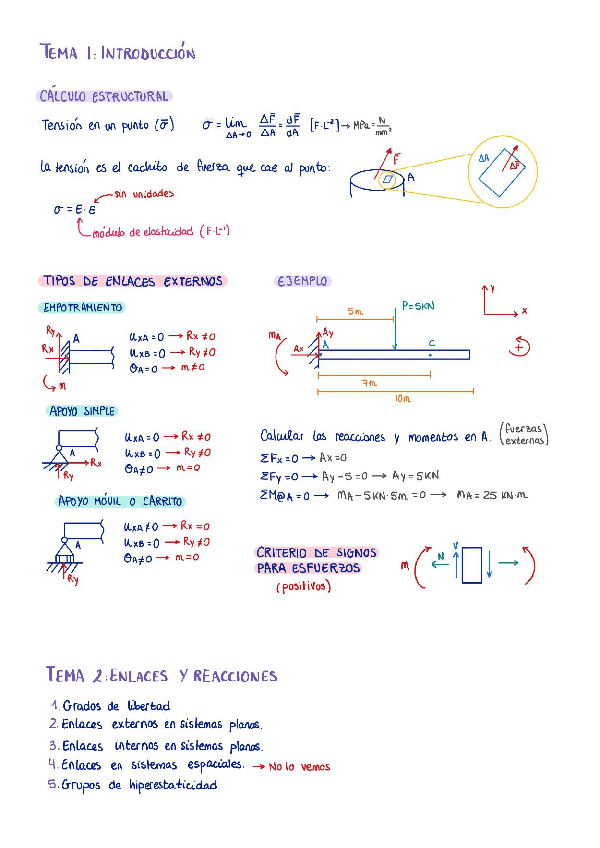 TEMA 1: INTRODUCCIÓN
CÁLCULO ESTRUCTURAL
Tensión en un punto (σ̄) σ = lím ΔA→0 ΔF̄/ΔA = dF̄/dA [F·L⁻²] → MPa = N/mm²
La tensión es el cachito de fuerza que cae al punto:
F
A
ΔA
ΔF̄
sin unidades
σ = E · ε
módulo de elasticidad (F·L⁻¹)
TIPOS DE ENLACES EXTERNOS
EMPOTRAMIENTO
Ry
A
Rx
m
UxA = 0 → Rx ≠ 0
UxB = 0 → Ry ≠ 0
θA = 0 → m ≠ 0
APOYO SIMPLE
A
Rx
Ry
UxA = 0 → Rx ≠ 0
UxB = 0 → Ry ≠ 0
θA ≠ 0 → m = 0
APOYO MÓVIL O CARRITO
A
Ry
UxA ≠ 0 → Rx = 0
UxB = 0 → Ry ≠ 0
θA ≠ 0 → m = 0
EJEMPLO
P = 5KN
5m
y
x
mA
Ay
Ax
A
C
+
7m
10m
Calcular las reacciones y momentos en A. (fuerzas externas)
ΣFx = 0 → Ax = 0
ΣFy = 0 → Ay - 5 = 0 → Ay = 5KN
ΣM@A = 0 → mA - 5KN·5m = 0 → mA = 25 KN·m
CRITERIO DE SIGNOS
PARA ESFUERZOS
(positivos)
m
N
V
TEMA 2: ENLACES Y REACCIONES
1. Grados de libertad
2. Enlaces externos en sistemas planos.
3. Enlaces internos en sistemas planos.
4. Enlaces en sistemas espaciales. → No lo vemos
5. Grupos de hiperestaticidad